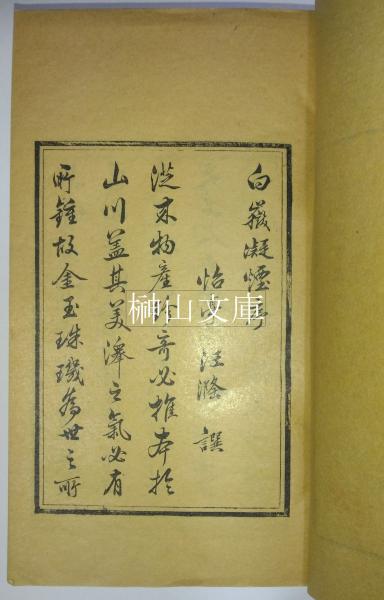 白嶽凝煙序
怡汪滌譔
從來物產奇必推本於
山川蓋其美之氣必有
所鍾故金玉珠璣爲世之所
榊山文庫